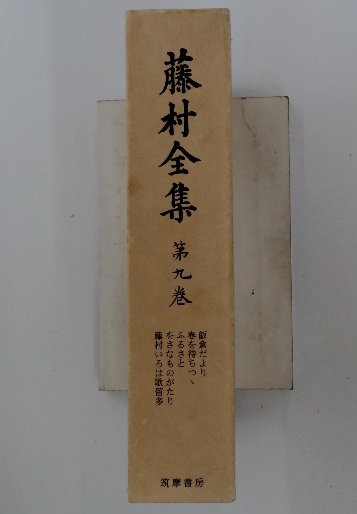 藤村全集
第九巻
飯倉だより
春を待ちつゝ
ふるさと
をさなものがたり
藤村いろは歌留多
筑摩書房